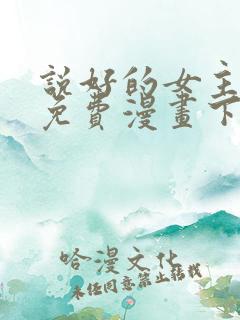 說好的女主
免費漫畫下
哈漫文化
未經同意禁止轉載